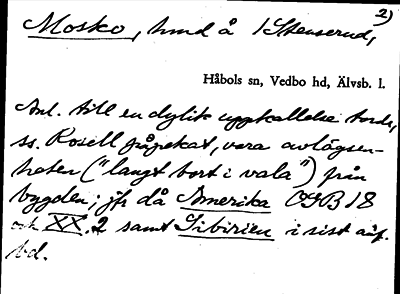 2)
Mosko, hmd å 1 Stenserud,
Håbols sn, Vedbo hd, Älvsb. l.
Anl. till en dylik uppkallelse torde,
ss. Rosell påpekat, vara avlägsen-
heten ("langt bort i vala") från
bygden; jfr då Amerika OGB 18
och XX. 2 samt Sibirien i sist anf.
bd.